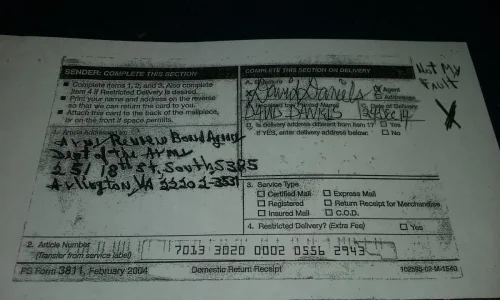 SENDER: COMPLETE THIS SECTION
■ Complete items 1, 2, and 3. Also complete
item 4 if Restricted Delivery is desired.
■ Print your name and address on the reverse
so that we can return the card to you.
■ Attach this card to the back of the mailpiece,
or on the front if space permits.
1. Article Addressed to:
Army Review Board Agency
Dept of the Army
251 18th St. South S385
Arlington VA 22202-3531
2. Article Number
(Transfer from service label)
7013 3020 0002 0556 2943
PS Form 3811, February 2004
Domestic Return Receipt
102595-02-M-1540
COMPLETE THIS SECTION ON DELIVERY
A. Signature
X David Daniels
☒ Agent
☐ Addressee
B. Received by (Printed Name)
DAVID DANIELS
C. Date of Delivery
D. Is delivery address different from item 1? ☐ Yes
If YES, enter delivery address below: ☐ No
3. Service Type
☐ Certified Mail ☐ Express Mail
☐ Registered ☐ Return Receipt for Merchandise
☐ Insured Mail ☐ C.O.D.
4. Restricted Delivery? (Extra Fee) ☐ Yes
Not My
Fault
X